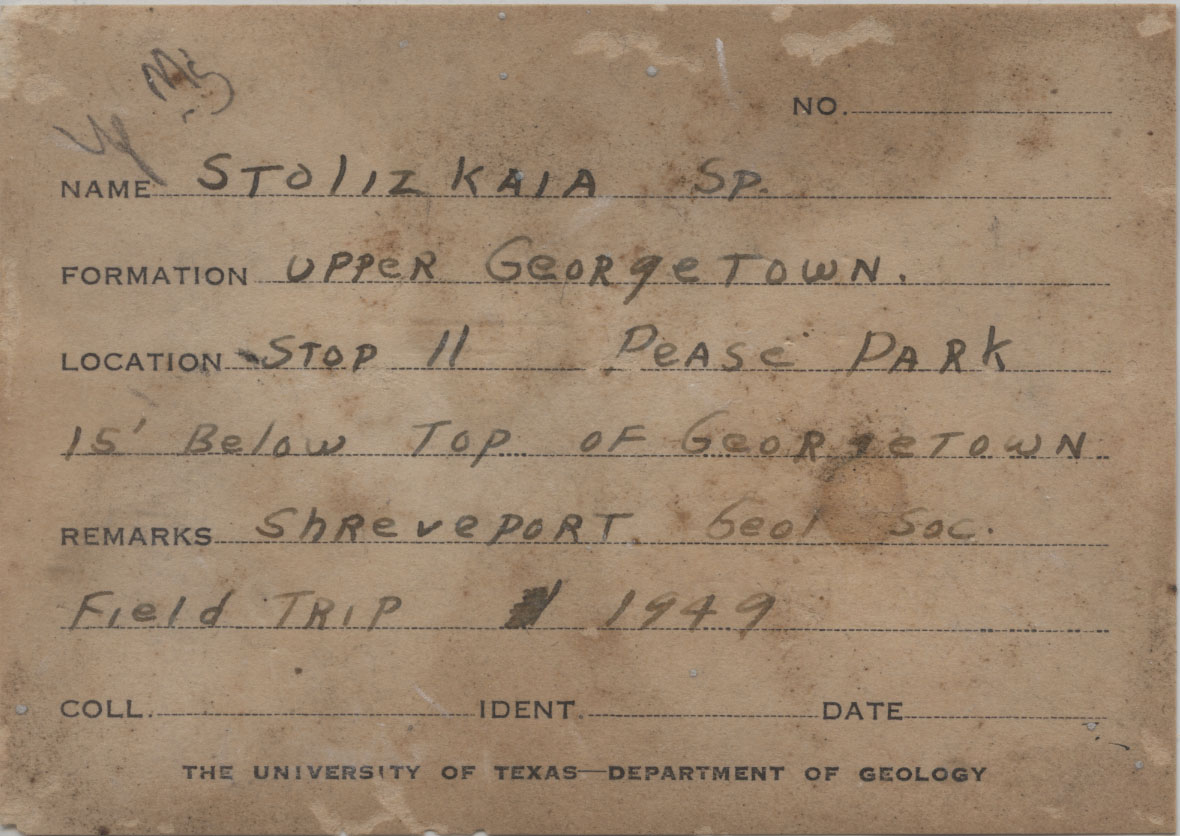 NO.
NAME STOLIZKAIA SP.
FORMATION UPPER GEORGETOWN.
LOCATION STOP 11 PEASE PARK
15' Below TOP OF GEORGETOWN
REMARKS ShREVEPORT. Geol Soc.
Field TRIP 1949
COLL. IDENT. DATE
THE UNIVERSITY OF TEXAS—DEPARTMENT OF GEOLOGY